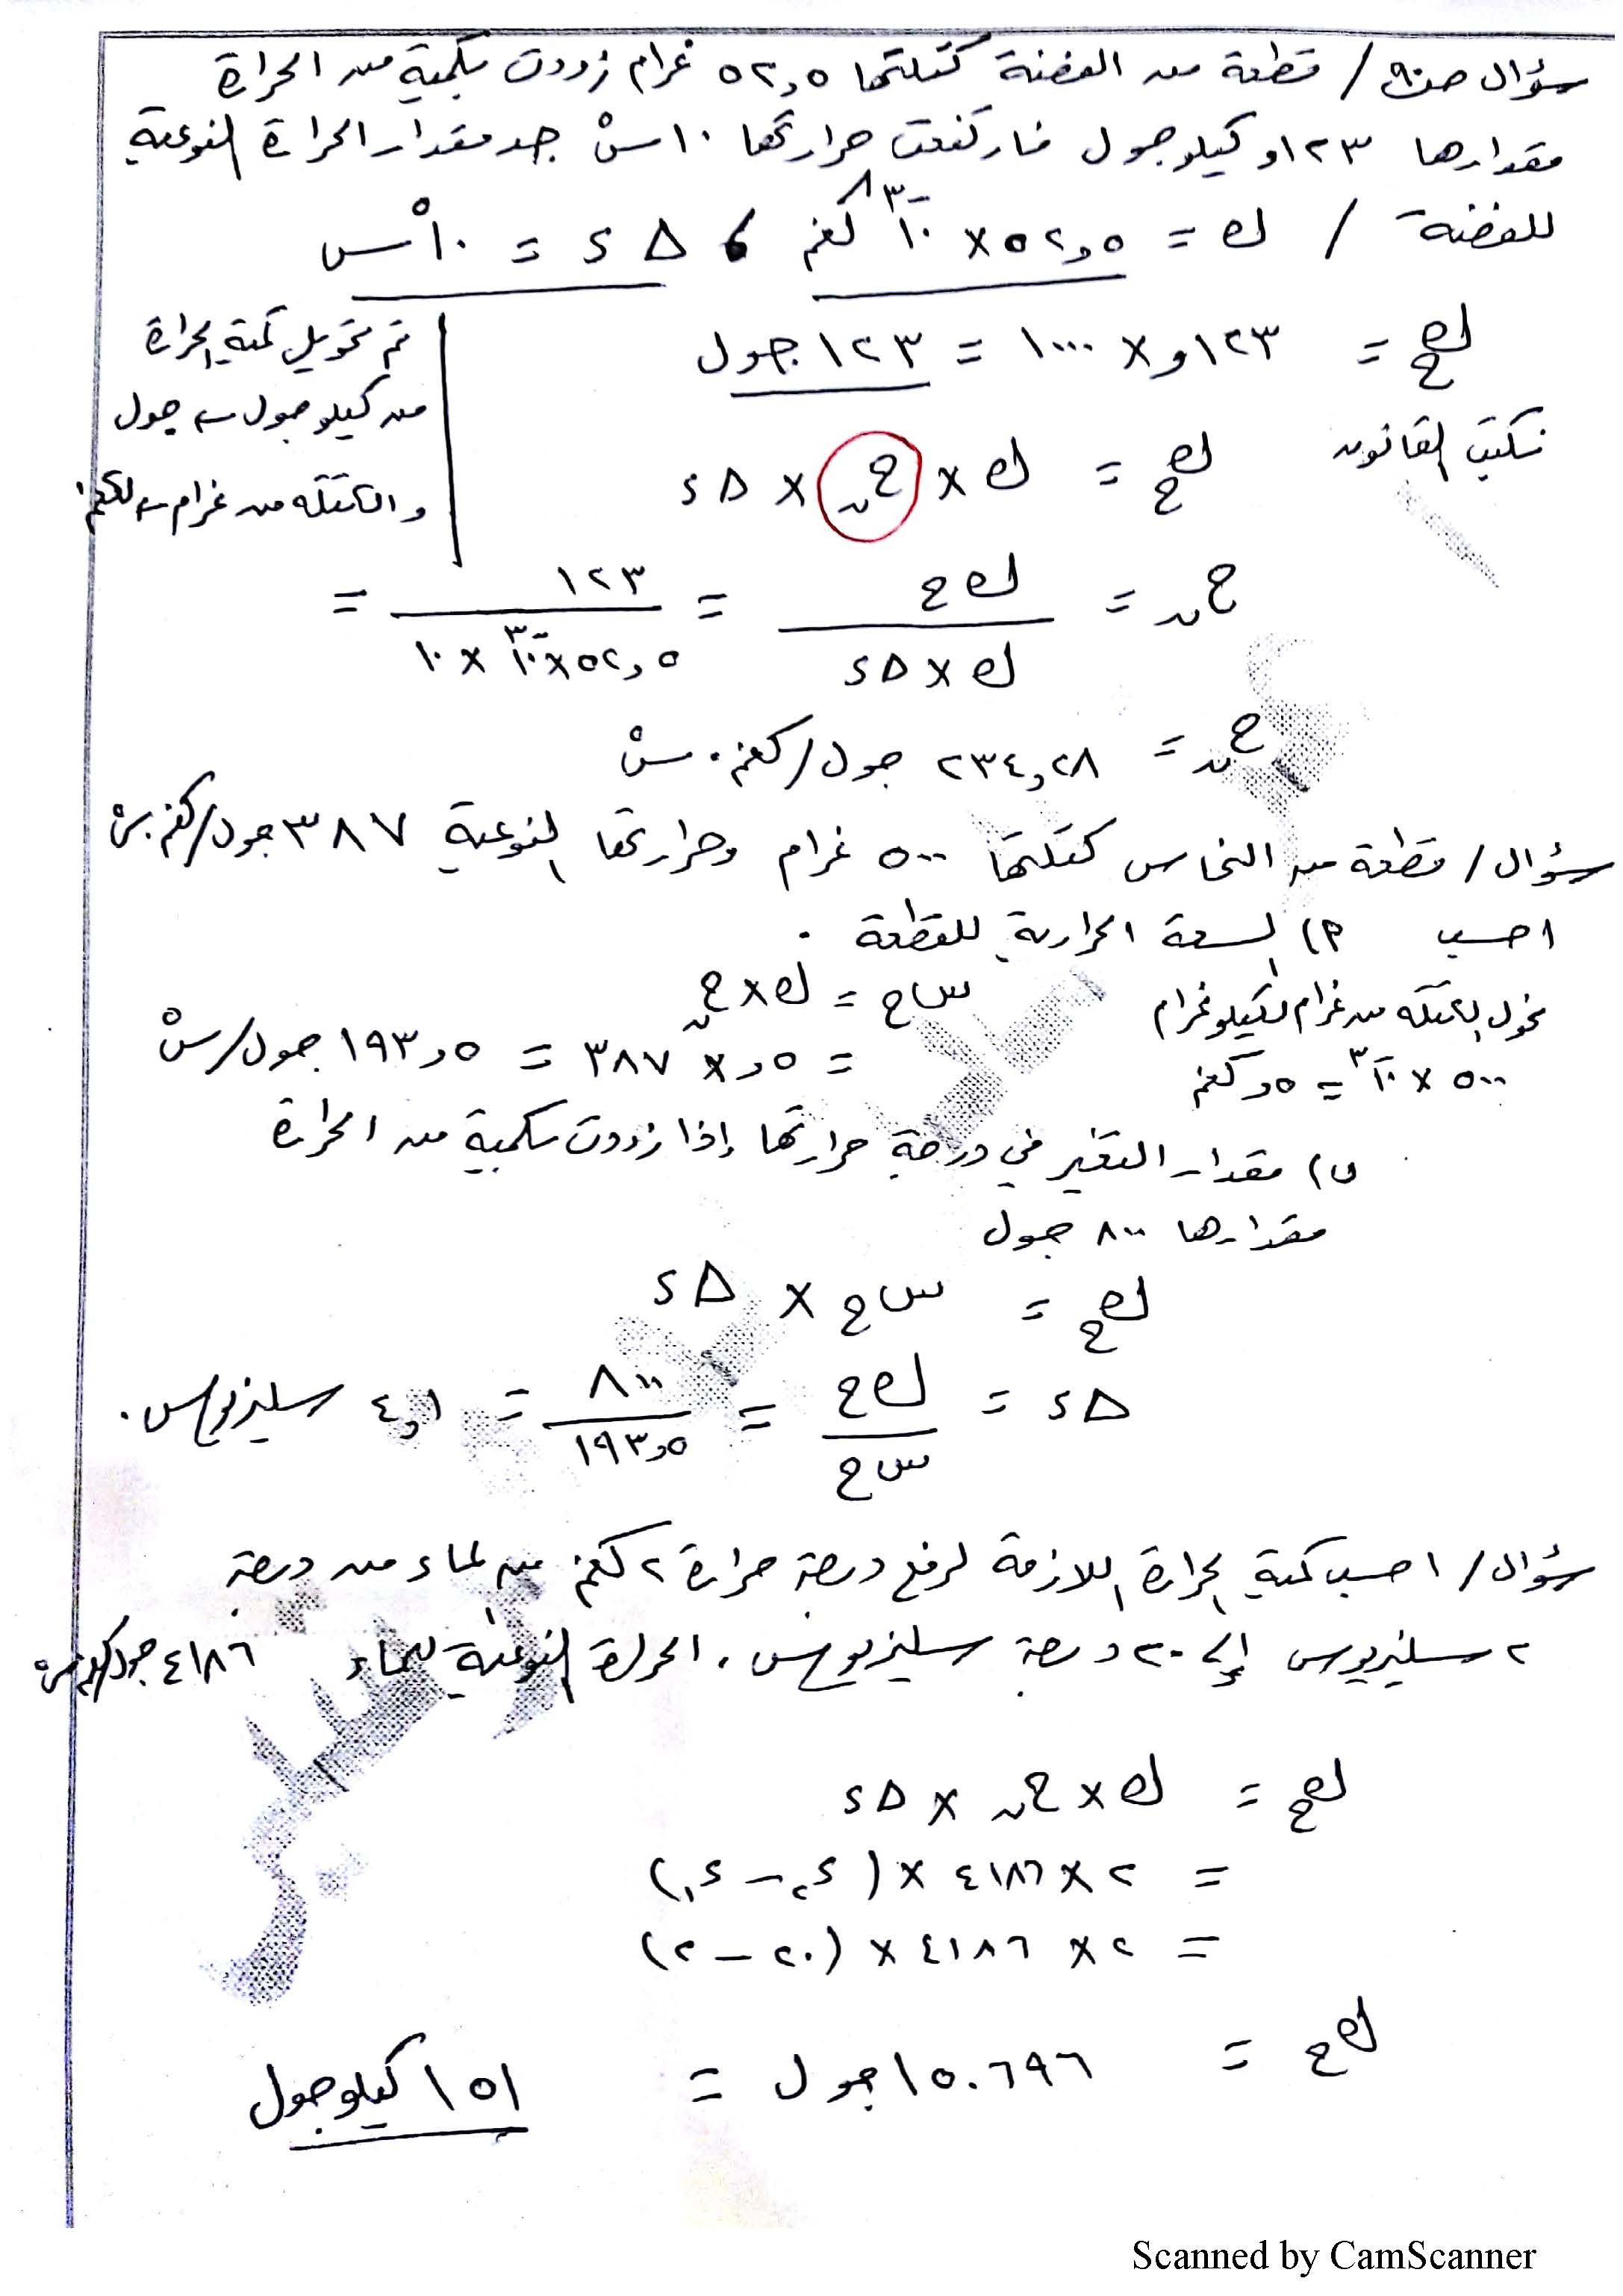 سؤال ص٩٠ / قطعة من الفضة كتلتها ٥٢,٥ غرام زودت بكمية من الحرارة
مقدارها ١٢٣,و كيلو جول فارتفعت حرارتها ١٠ سْ جد مقدار الحرارة النوعية
للفضة / ك = ٥٢,٥ × ١٠^-٣ كغم ، Δ د = ١٠ سْ
كح = ١٢٣,و × ١٠٠٠ = ١٢٣ جول
تم تحويل كمية الحرارة
من كيلو جول ← جول
والكتلة من غرام ← كغم
نكتب القانون كح = ك × حن × Δ د
حن = كح / (ك × Δ د) = ١٢٣ / (٥٢,٥ × ١٠^-٣ × ١٠) =
حن = ٢٣٤,٢٨ جول/كغم . سْ
سؤال / قطعة من النحاس كتلتها ٥٠٠ غرام وحرارتها النوعية ٣٨٧ جول/كغم.سْ
احسب أ) السعة الحرارية للقطعة .
سح = ك × حن
نحول الكتلة من غرام لكيلو غرام
٥٠٠ × ١٠^-٣ = ٥,و كغم
= ٥,و × ٣٨٧ = ١٩٣,٥ جول/سْ
ب) مقدار التغير في درجة حرارتها إذا زودت بكمية من الحرارة
مقدارها ٨٠٠ جول
كح = سح × Δ د
Δ د = كح / سح = ٨٠٠ / ١٩٣,٥ = ٤,١ سليزيوس .
سؤال / احسب كمية الحرارة اللازمة لرفع درجة حرارة ٢ كغم من الماء من درجة
٢ سليزيوس إلى ٢٠ درجة سليزيوس . الحرارة النوعية للماء ٤١٨٦ جول/كغم.سْ
كح = ك × حن × Δ د
= ٢ × ٤١٨٦ × (د٢ – د١)
= ٢ × ٤١٨٦ × (٢٠ – ٢)
كح = ١٥٠٦٩٦ جول = ١٥١ كيلو جول
Scanned by CamScanner